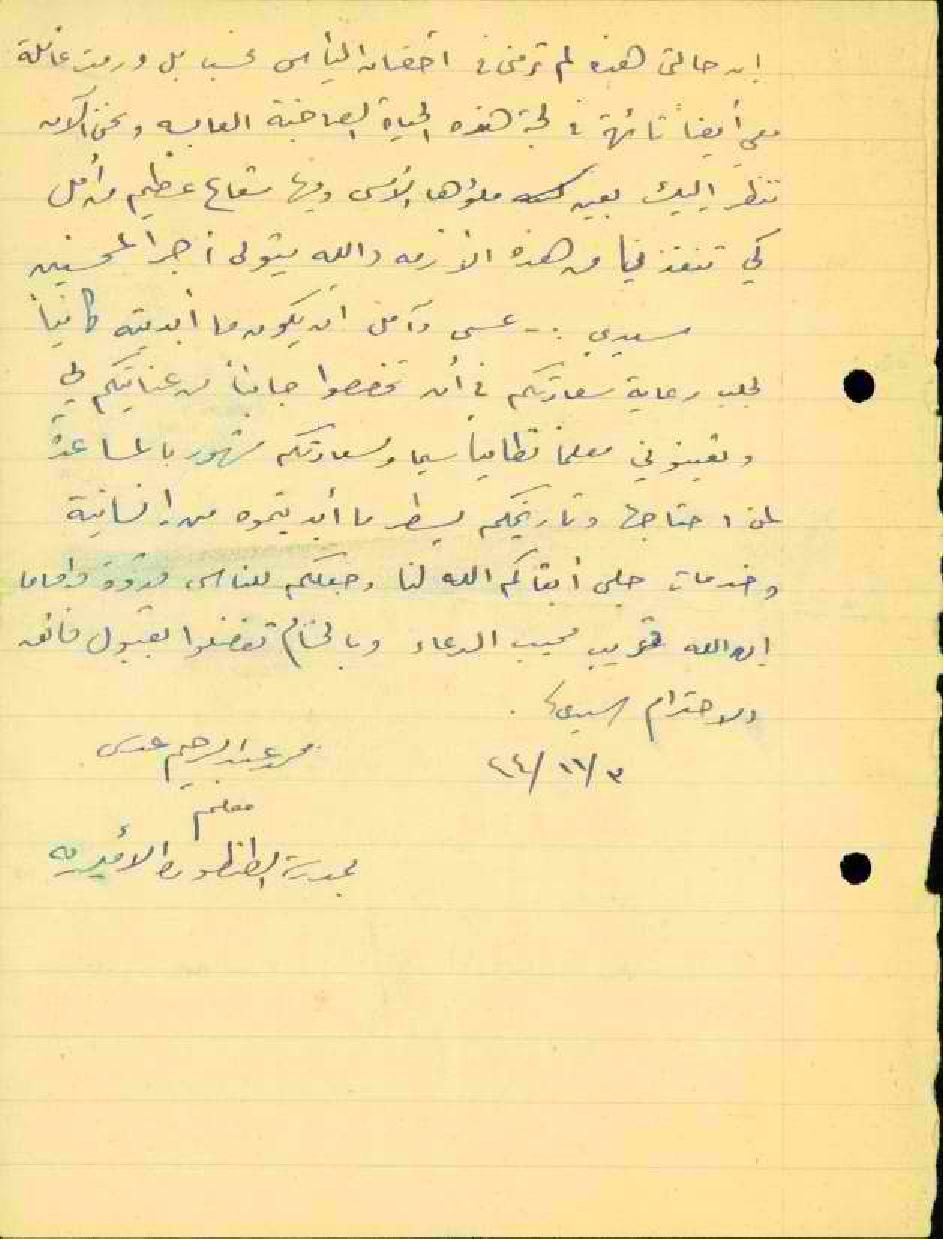 ان حالتي هذه لم ترمني في احضان اليأس فحسب بل ورمت عائلة
معي أيضاً تائهة في لجة هذه الحياة الصاخبة العابسه ونحن الآن
ننظر إليك بعين ملؤها الأسى وفيها شعاع عظيم من أمل
كي تنقذنا من هذه الأزمه والله يتولى أجر المحسنين
سيدي :- عسى وآمل ان يكون ما أبديته كافياً
لجلب رعاية سعادتكم في أن تخصصوا جانباً من عنايتكم لي
وتعينوني معلماً نظامياً سيما وسعادتكم مشهور بالمساعدة
لمن احتاجها وتاريخكم يسطر ما أبديتموه من إنسانية
وخدمات جلى أبقاكم الله لنا وجعلكم للناس قدوة وإماما
ان الله قريب مجيب الدعاء وبالختام تفضلوا بقبول فائق
الاحترام سيدي .
محمد عبد الرحيم
٣/١١/٦٤
معلم
بمدرسة الطنطورة الأميرية